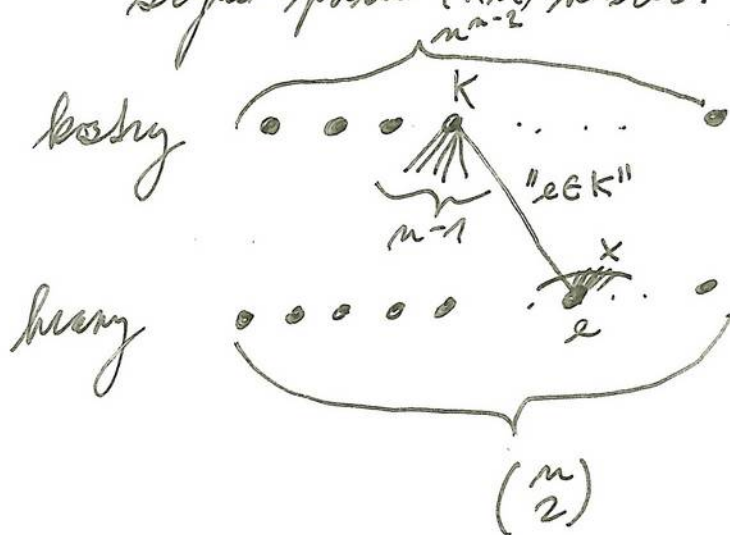 n^{n-2}
kostry
K
"e∈K"
n-1
x
hrany
e
\binom{n}{2}